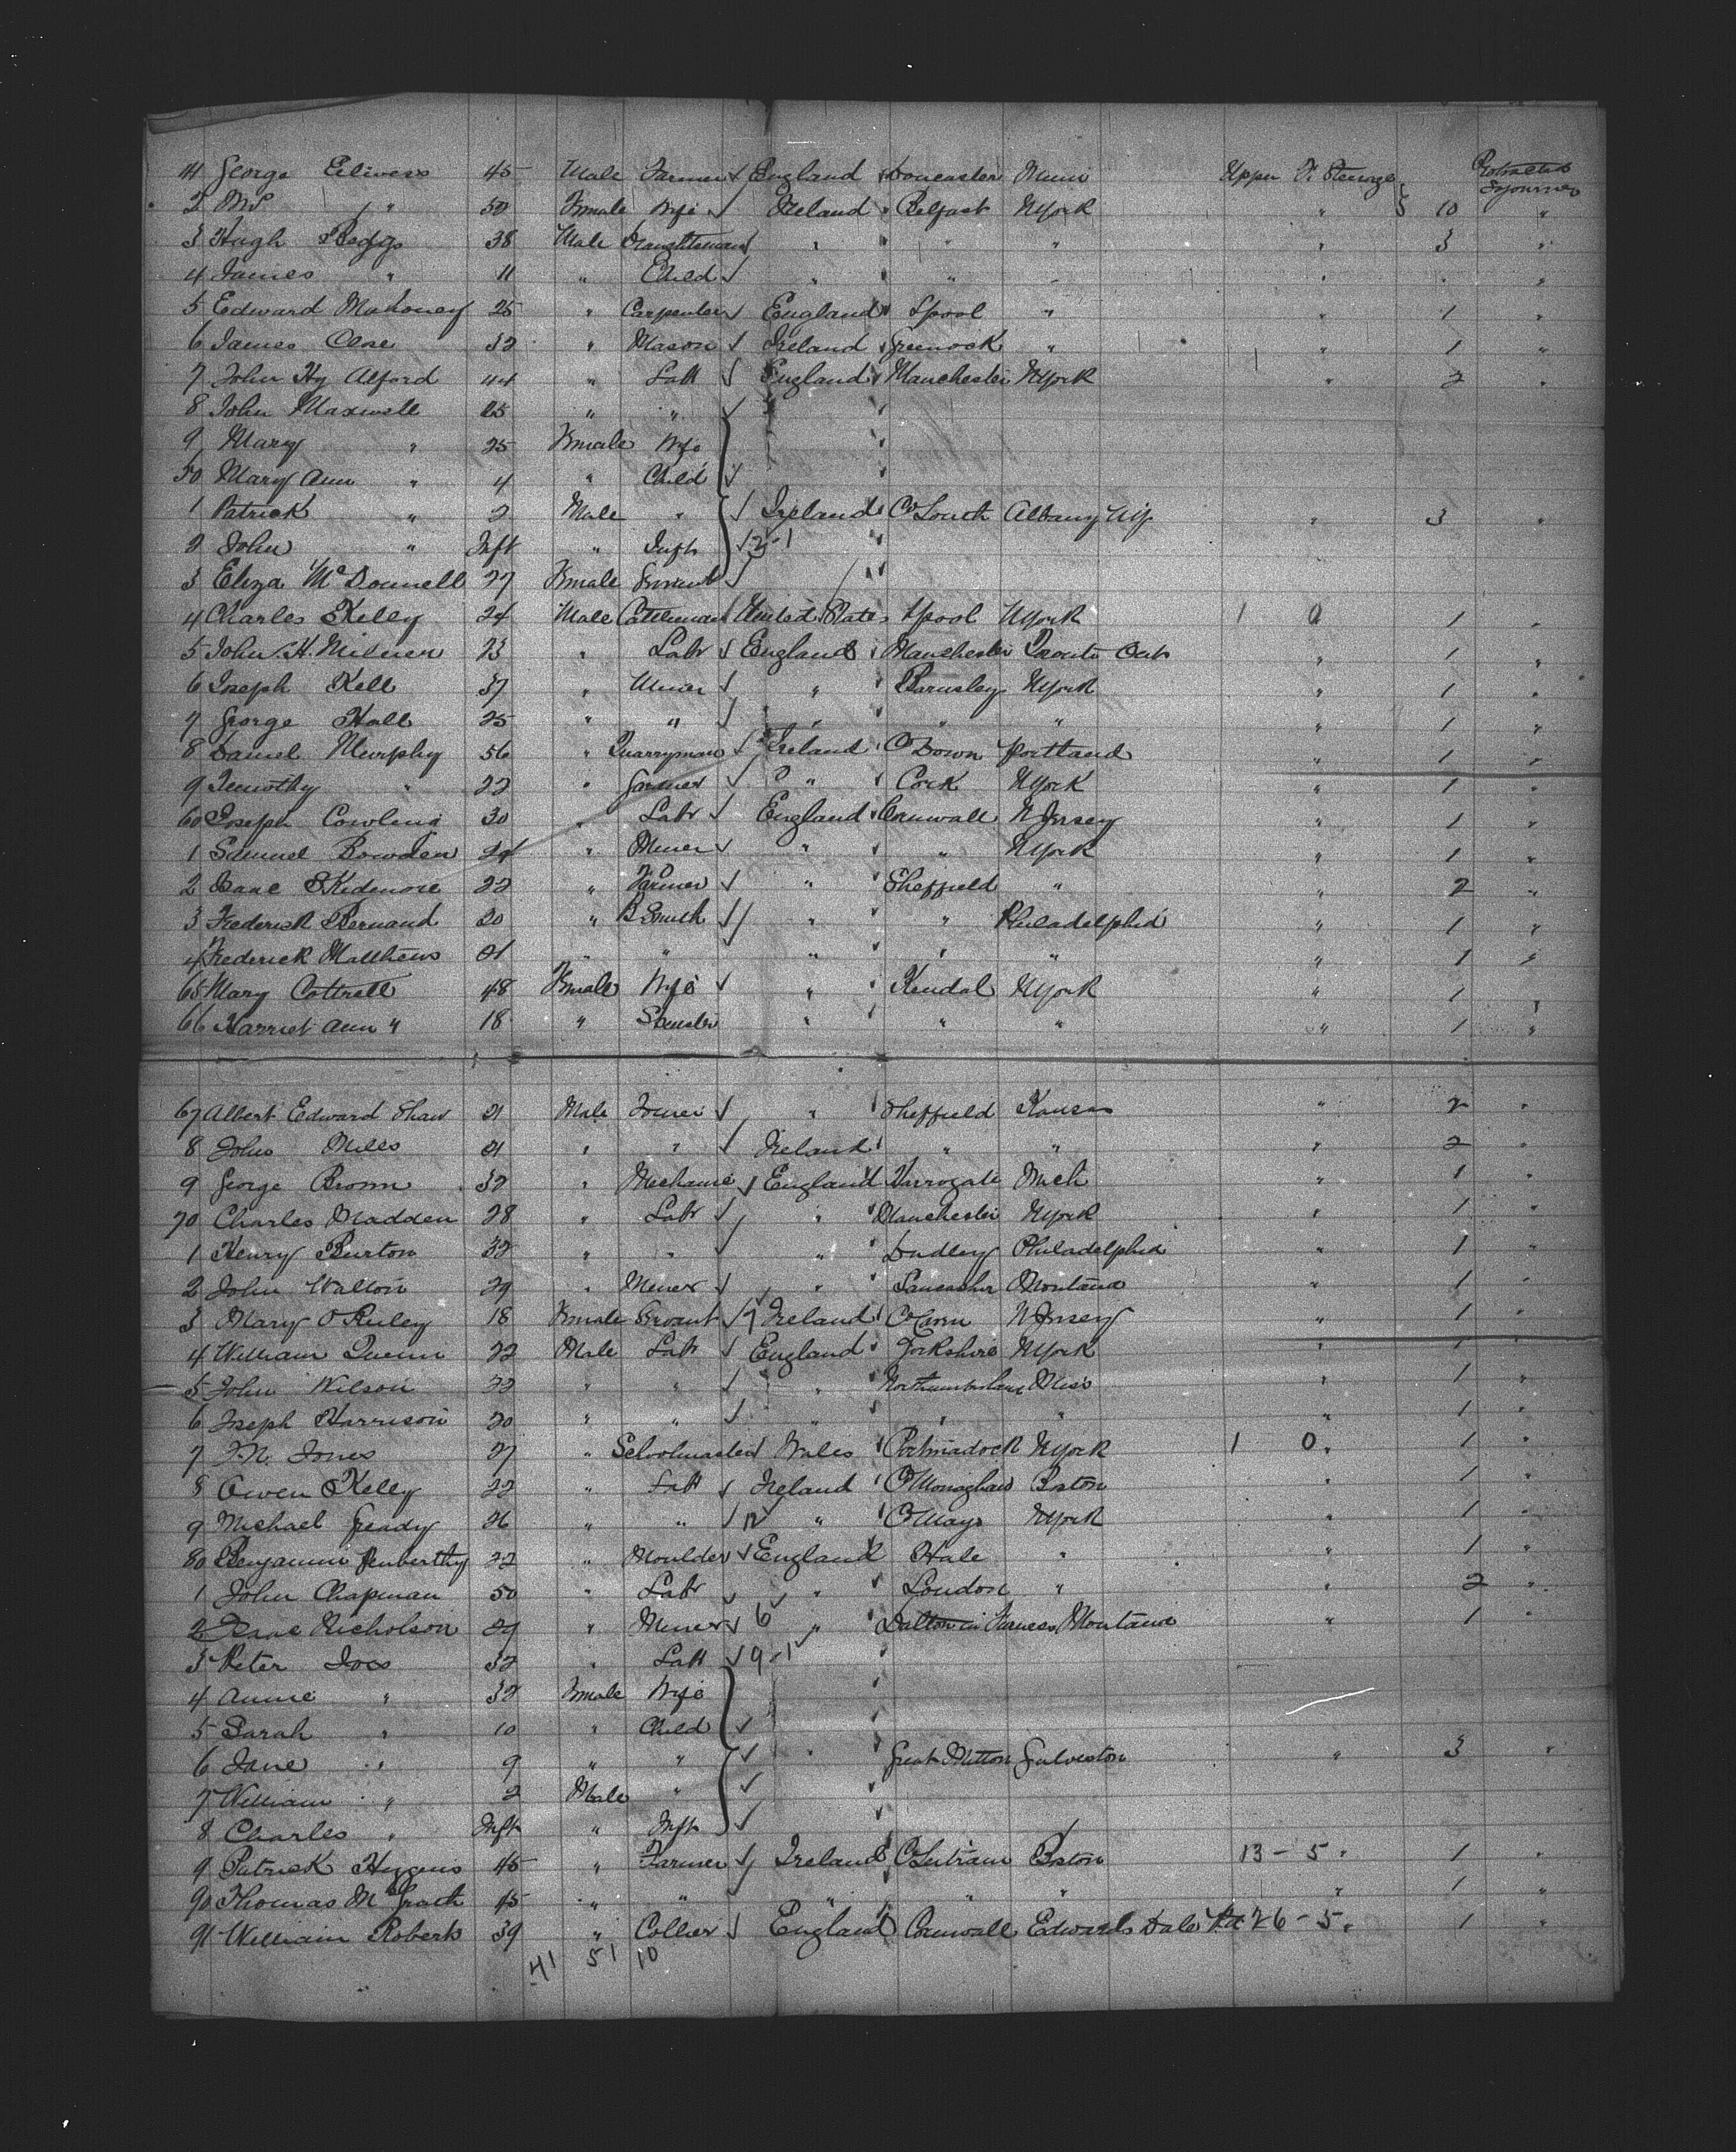 41 George 45 Male Farmer England Doncaster Upper F. Steerage Protracted Sojourner
2 Mrs " 50 Female Wife Ireland Belfast NYork " 10 "
3 Hugh 38 Male Draughtsman " " " " 3 "
4 James " 11 " Child " " " " "
5 Edward Mahoney 25 " Carpenter England Lpool " " 1 "
6 James 32 " Mason Ireland Greenock " " 1 "
7 John Hy Alford 44 " Labr England Manchester NYork " 2 "
8 John Maxwell 25 " "
9 Mary " 25 Female Wife
50 Mary Ann " 4 " Child
1 Patrick " 2 Male " Ireland Co Louth Albany " 3 "
2 John " Inft " Inft 2-1
3 Eliza McDonnell 27 Female Servant
4 Charles Kelly 24 Male Cattleman United States Lpool NYork 1 0 1 "
5 John H. Milner 23 " Labr England Manchester " 1 "
6 Joseph Kell 37 " Miner " Barnsley NYork " 1 "
7 George Hall 25 " " " " " " 1 "
8 Daniel Murphy 56 " Quarryman Ireland Co Down Portland " 1 "
9 Timothy " 22 " " Cork NYork " 1 "
60 Joseph Cowling 30 " Labr England Cornwall N Jersey " 1 "
1 Samuel Bowden 24 " Miner " " NYork " 1 "
2 Isaac Skidmore 22 " Farmer " Sheffield " " 2 "
3 Frederick 20 " B Smith " " Philadelphia " 1 "
4 Frederick Matthews 21 " " " " " " 1 "
65 Mary Cottrell 48 Female Wife " Kendal NYork " 1 "
66 Harriet Ann " 18 " Spinster " " " " 1 "
67 Albert Edward Shaw 21 Male Joiner " Sheffield Kansas " 2 "
8 John Mills 21 " " Ireland " " " 2 "
9 George Brown 32 " Mechanic England Harrogate Mich " 1 "
70 Charles Madden 28 " Labr " Manchester NYork " 1 "
1 Henry Burton 32 " " " Dudley Philadelphia " 1 "
2 John Walton 29 " Miner " Lancashire Montana " 1 "
3 Mary 18 Female Servant 7 Ireland N Jersey " 1 "
4 William Quinn 22 Male Labr England Yorkshire NYork " 1 "
5 John Wilson 22 " " " Northumberland " 1 "
6 Joseph Harrison 20 " " " " " " 1 "
7 Jones 27 " Schoolmaster Wales Portmadock NYork 1 0 " 1 "
8 Owen Kelly 22 " Labr Ireland Co Monaghan Boston " 1 "
9 Michael Gready 26 " " 12 " Co Mayo NYork " 1 "
80 Benjamin Penberthy 22 " Moulder England Hale " " 1 "
1 John Chapman 50 " Labr " London " " 2 "
2 Isaac Nicholson 29 " Miner 6 " Dalton in Furness Montana " 1 "
3 Peter 32 " Labr 9-1
4 Annie " 32 Female Wife
5 Sarah " 10 " Child
6 Jane " 9 " " " Galveston " 3 "
7 William " 2 Male "
8 Charles " Inft " Inft
9 Patrick Higgins 45 " Farmer Ireland Co Leitrim Boston 13-5 " 1 "
90 Thomas McGrath 45 " " " " " " 1 "
91 William Roberts 39 " Collier England Cornwall Edwards Dale 26-5 " 1 "
41 51 10